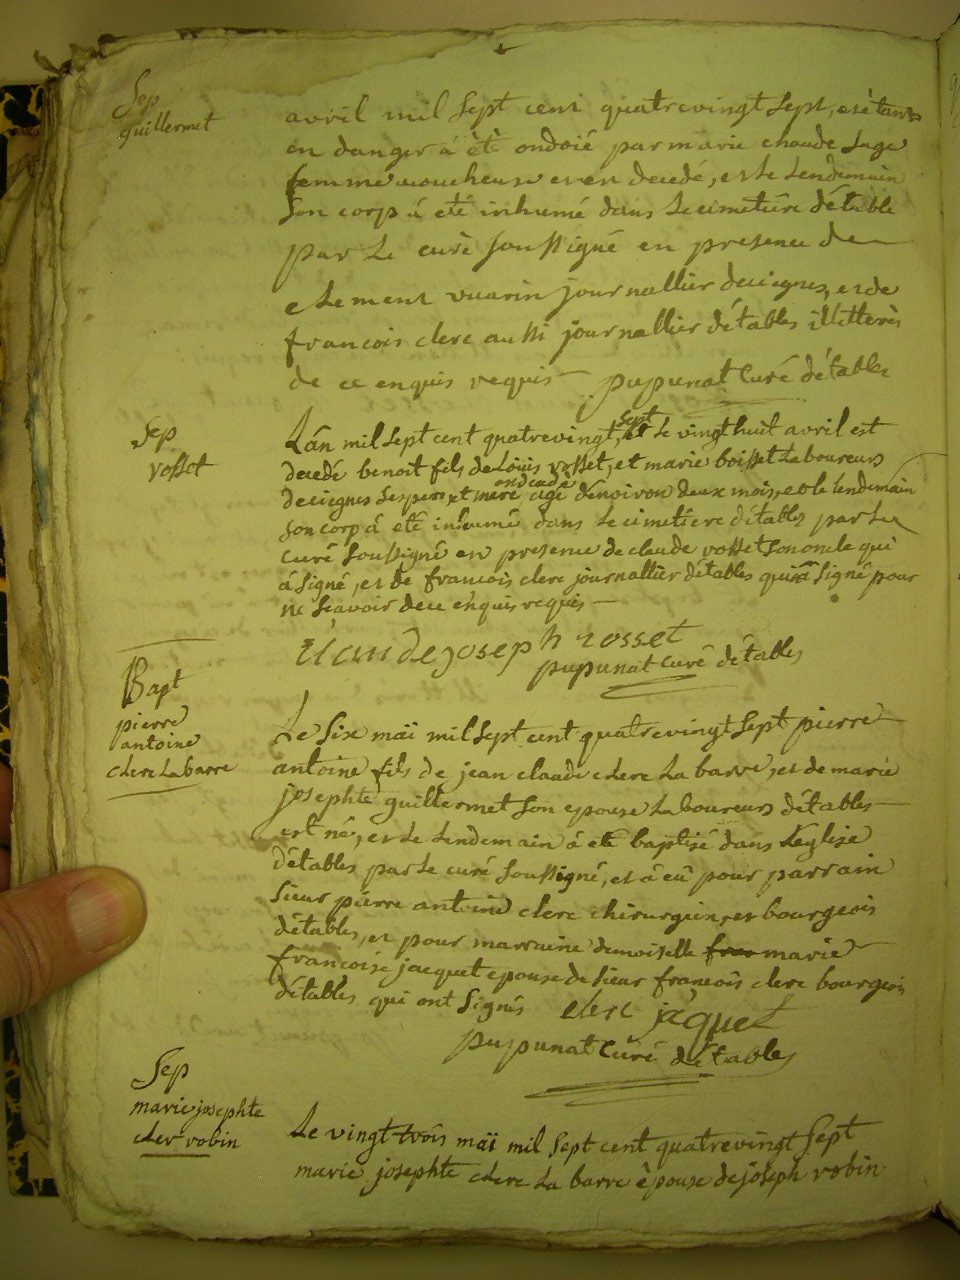 Sep
guillermet
avril mil Sept cent quatrevingt Sept, et ètant
en danger á èté ondoié par marie chaude Sage
femme acoucheuse et en decedé, et le Lendemain
Son corp á eté inhumé dans Le cimetiére d'étable
par Le curé Soussigné en presence de
clement vuarin journallier deciegnes, et de
francois clerc aussi journallier détables illitterés
de ce enquis requis pupunat Curé détables
Sep
rosset
L'án mil Sept cent quatrevingt, Sept Le vingt huit avril est
decedé benoit fils de Loüis rosset, et marie boisset Laboureurs
deciegnes Ses pere, et mere ondoié agé d'énviron deux mois, et le Lendemain
Son corp á eté inhumé dans Le cimetiere détables par Le
curé Soussigné en presence de claude rosset Son oncle qui
á Signé, et de francois clerc journallier détables qui n'á Signé pour
ne Scavoir de ce enquis requis
Claude joseph rosset
pupunat Curé détables
Bapt
pierre
antoine
clerc La barre
Le Six maï mil Sept cent quatrevingt Sept pierre
antoine fils de jean claude clerc La barre, et de marie
josephte guillermet Son epouse Laboureurs détables
est né, et Le Lendemain á eté baptisé dans L'église
détables par Le curé Soussigné, et á eû pour parrain
Sieur pierre antoine clerc chirurgien, et bourgeois
détables, et pour marraine demoiselle marie
francoise jacquet epouse de Sieur francois clerc bourgeois
détables qui ont Signés clerc jáquet
pupunat Curé détables
Sep
marie josephte
clerc robin
Le vingt trois maï mil Sept cent quatrevingt Sept
marie josephte clerc La barre épouse de joseph robin